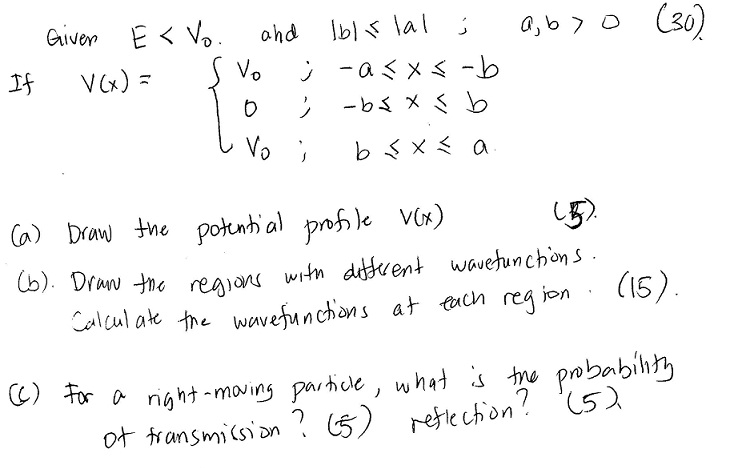 Given E < V₀. and |b| ≤ |a| ; a, b > 0 (30)
If V(x) = { V₀ ; -a ≤ x ≤ -b
0 ; -b ≤ x ≤ b
V₀ ; b ≤ x ≤ a
(a) Draw the potential profile V(x) (5).
(b). Draw the regions with different wavefunctions.
Calculate the wavefunctions at each region. (15).
(c) For a right-moving particle, what is the probability
of transmission? (5) reflection? (5)